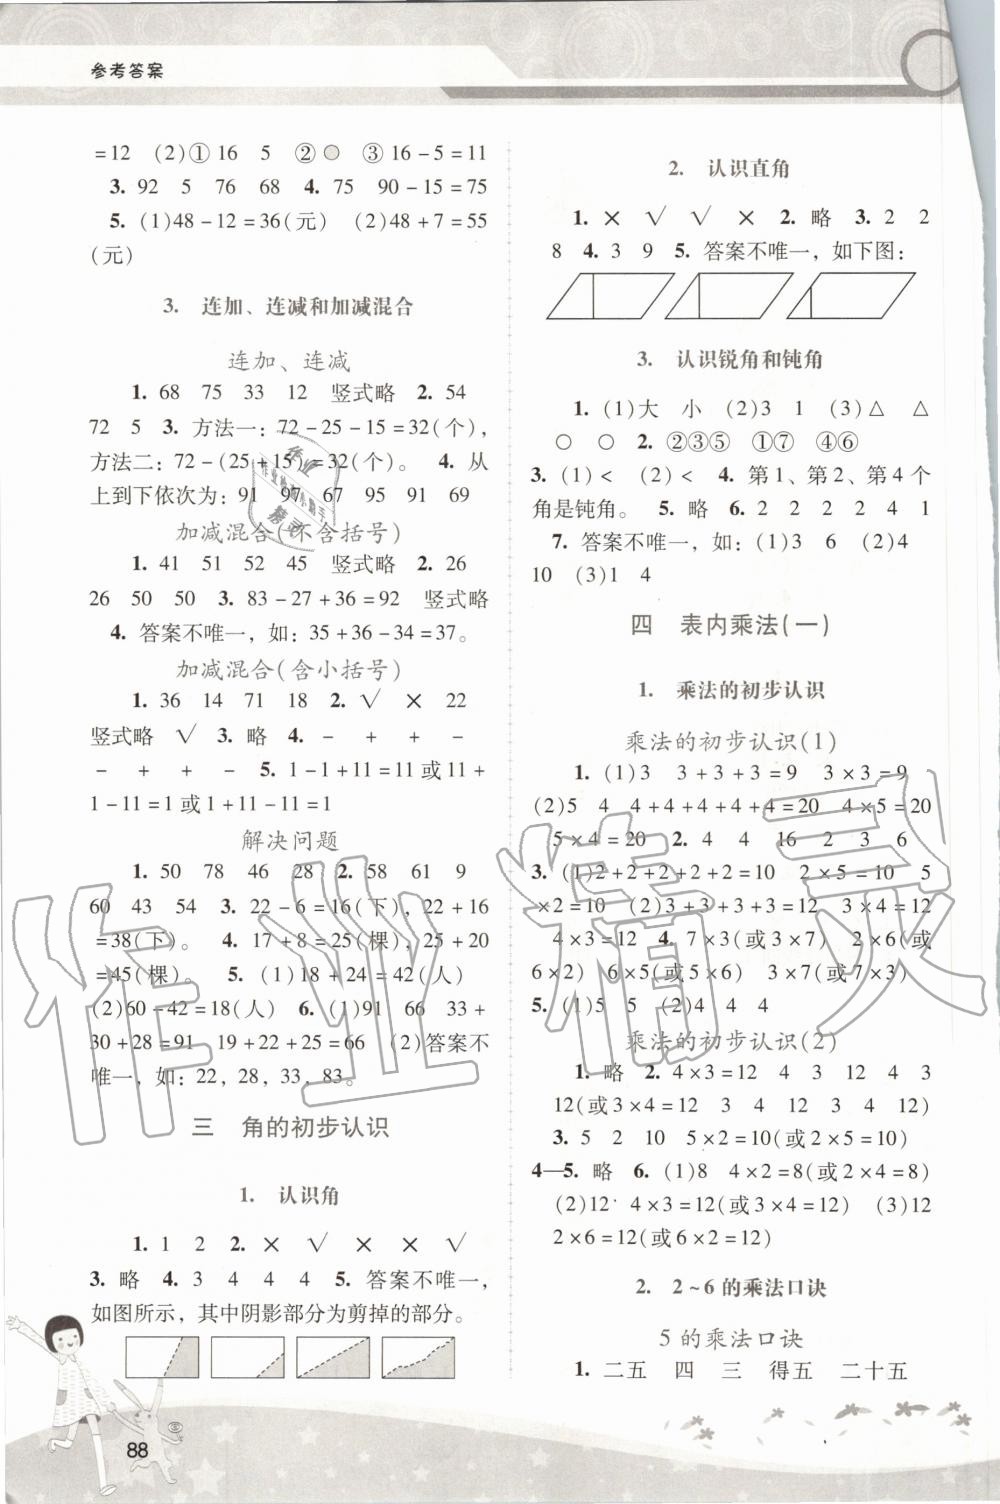 参考答案
=12 (2)① 16 5 ② ● ③ 16-5=11
3. 92 5 76 68 4. 75 90-15=75
5. (1)48-12=36(元) (2)48+7=55
(元)
3. 连加、连减和加减混合
连加、连减
1. 68 75 33 12 竖式略 2. 54
72 5 3. 方法一：72-25-15=32(个)，
方法二：72-(25+15)=32(个)。 4. 从
上到下依次为：91 97 67 95 91 69
加减混合(不含括号)
1. 41 51 52 45 竖式略 2. 26
26 50 50 3. 83-27+36=92 竖式略
4. 答案不唯一，如：35+36-34=37。
加减混合(含小括号)
1. 36 14 71 18 2. √ × 22
竖式略 √ 3. 略 4. - + + -
- + + - 5. 1-1+11=11或11+
1-11=1或1+11-11=1
解决问题
1. 50 78 46 28 2. 58 61 9
60 43 54 3. 22-6=16(下)，22+16
=38(下)。 4. 17+8=25(棵)，25+20
=45(棵)。 5. (1)18+24=42(人)
(2)60-42=18(人) 6. (1)91 66 33+
30+28=91 19+22+25=66 (2)答案不
唯一，如：22，28，33，83。
三 角的初步认识
1. 认识角
1. 1 2 2. × √ × × √
3. 略 4. 3 4 4 4 5. 答案不唯一，
如图所示，其中阴影部分为剪掉的部分。
88
2. 认识直角
1. × √ √ × 2. 略 3. 2 2
8 4. 3 9 5. 答案不唯一，如下图：
3. 认识锐角和钝角
1. (1)大 小 (2)3 1 (3)△ △
○ ○ 2. ②③⑤ ①⑦ ④⑥
3. (1)< (2)< 4. 第1、第2、第4个
角是钝角。 5. 略 6. 2 2 2 2 4 1
7. 答案不唯一，如：(1)3 6 (2)4
10 (3)1 4
四 表内乘法(一)
1. 乘法的初步认识
乘法的初步认识(1)
1. (1)3 3+3+3=9 3×3=9
(2)5 4 4+4+4+4+4=20 4×5=20
5×4=20 2. 4 4 16 2 3 6
3. (1)2+2+2+2+2=10 2×5=10 5
×2=10 (2)3+3+3+3=12 3×4=12
4×3=12 4. 7×3(或3×7) 2×6(或
6×2) 6×5(或5×6) 3×7(或7×3)
5. (1)5 5 (2)4 4 4
乘法的初步认识(2)
1. 略 2. 4×3=12 4 3 12 4 3
12(或3×4=12 3 4 12 3 4 12)
3. 5 2 10 5×2=10(或2×5=10)
4—5. 略 6. (1)8 4×2=8(或2×4=8)
(2)12 4×3=12(或3×4=12) (3)12
2×6=12(或6×2=12)
2. 2~6的乘法口诀
5的乘法口诀
1. 二五 四 三 得五 二十五
作业精灵